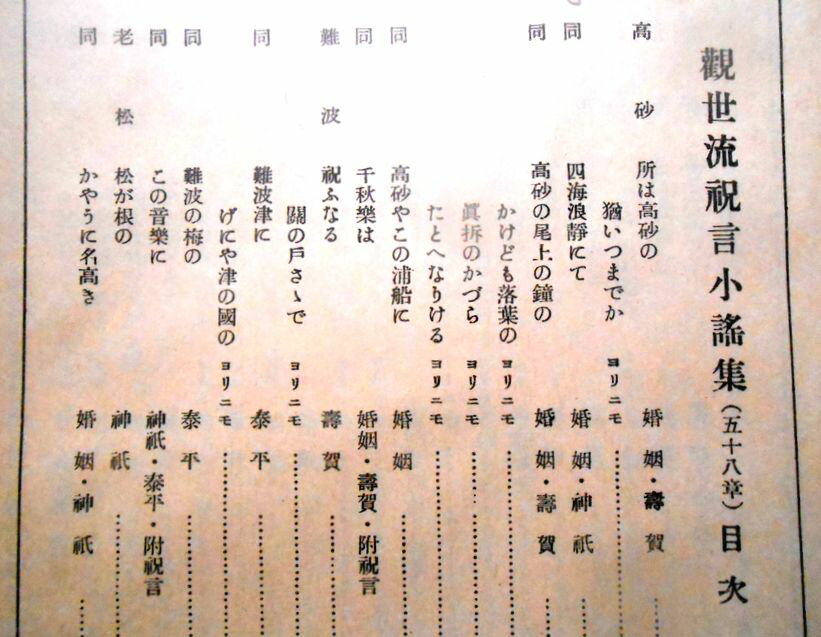 觀世流祝言小謠集(五十八章)目次
高砂 所は高砂の 婚姻・壽賀
猶いつまでか ヨリニモ
同 四海浪靜にて 婚姻・神祇
同 高砂の尾上の鐘の 婚姻・壽賀
かけども落葉の ヨリニモ
眞拆のかづら ヨリニモ
たとへなりける ヨリニモ
同 高砂やこの浦船に 婚姻
同 千秋樂は 婚姻・壽賀・附祝言
難波 祝ふなる 壽賀
關の戸さゝで ヨリニモ
同 難波津に 泰平
げにや津の國の ヨリニモ
同 難波の梅の 泰平
同 この音樂に 神祇・泰平・附祝言
老松 松が根の 神祇
同 かやうに名高き 婚姻・神祇